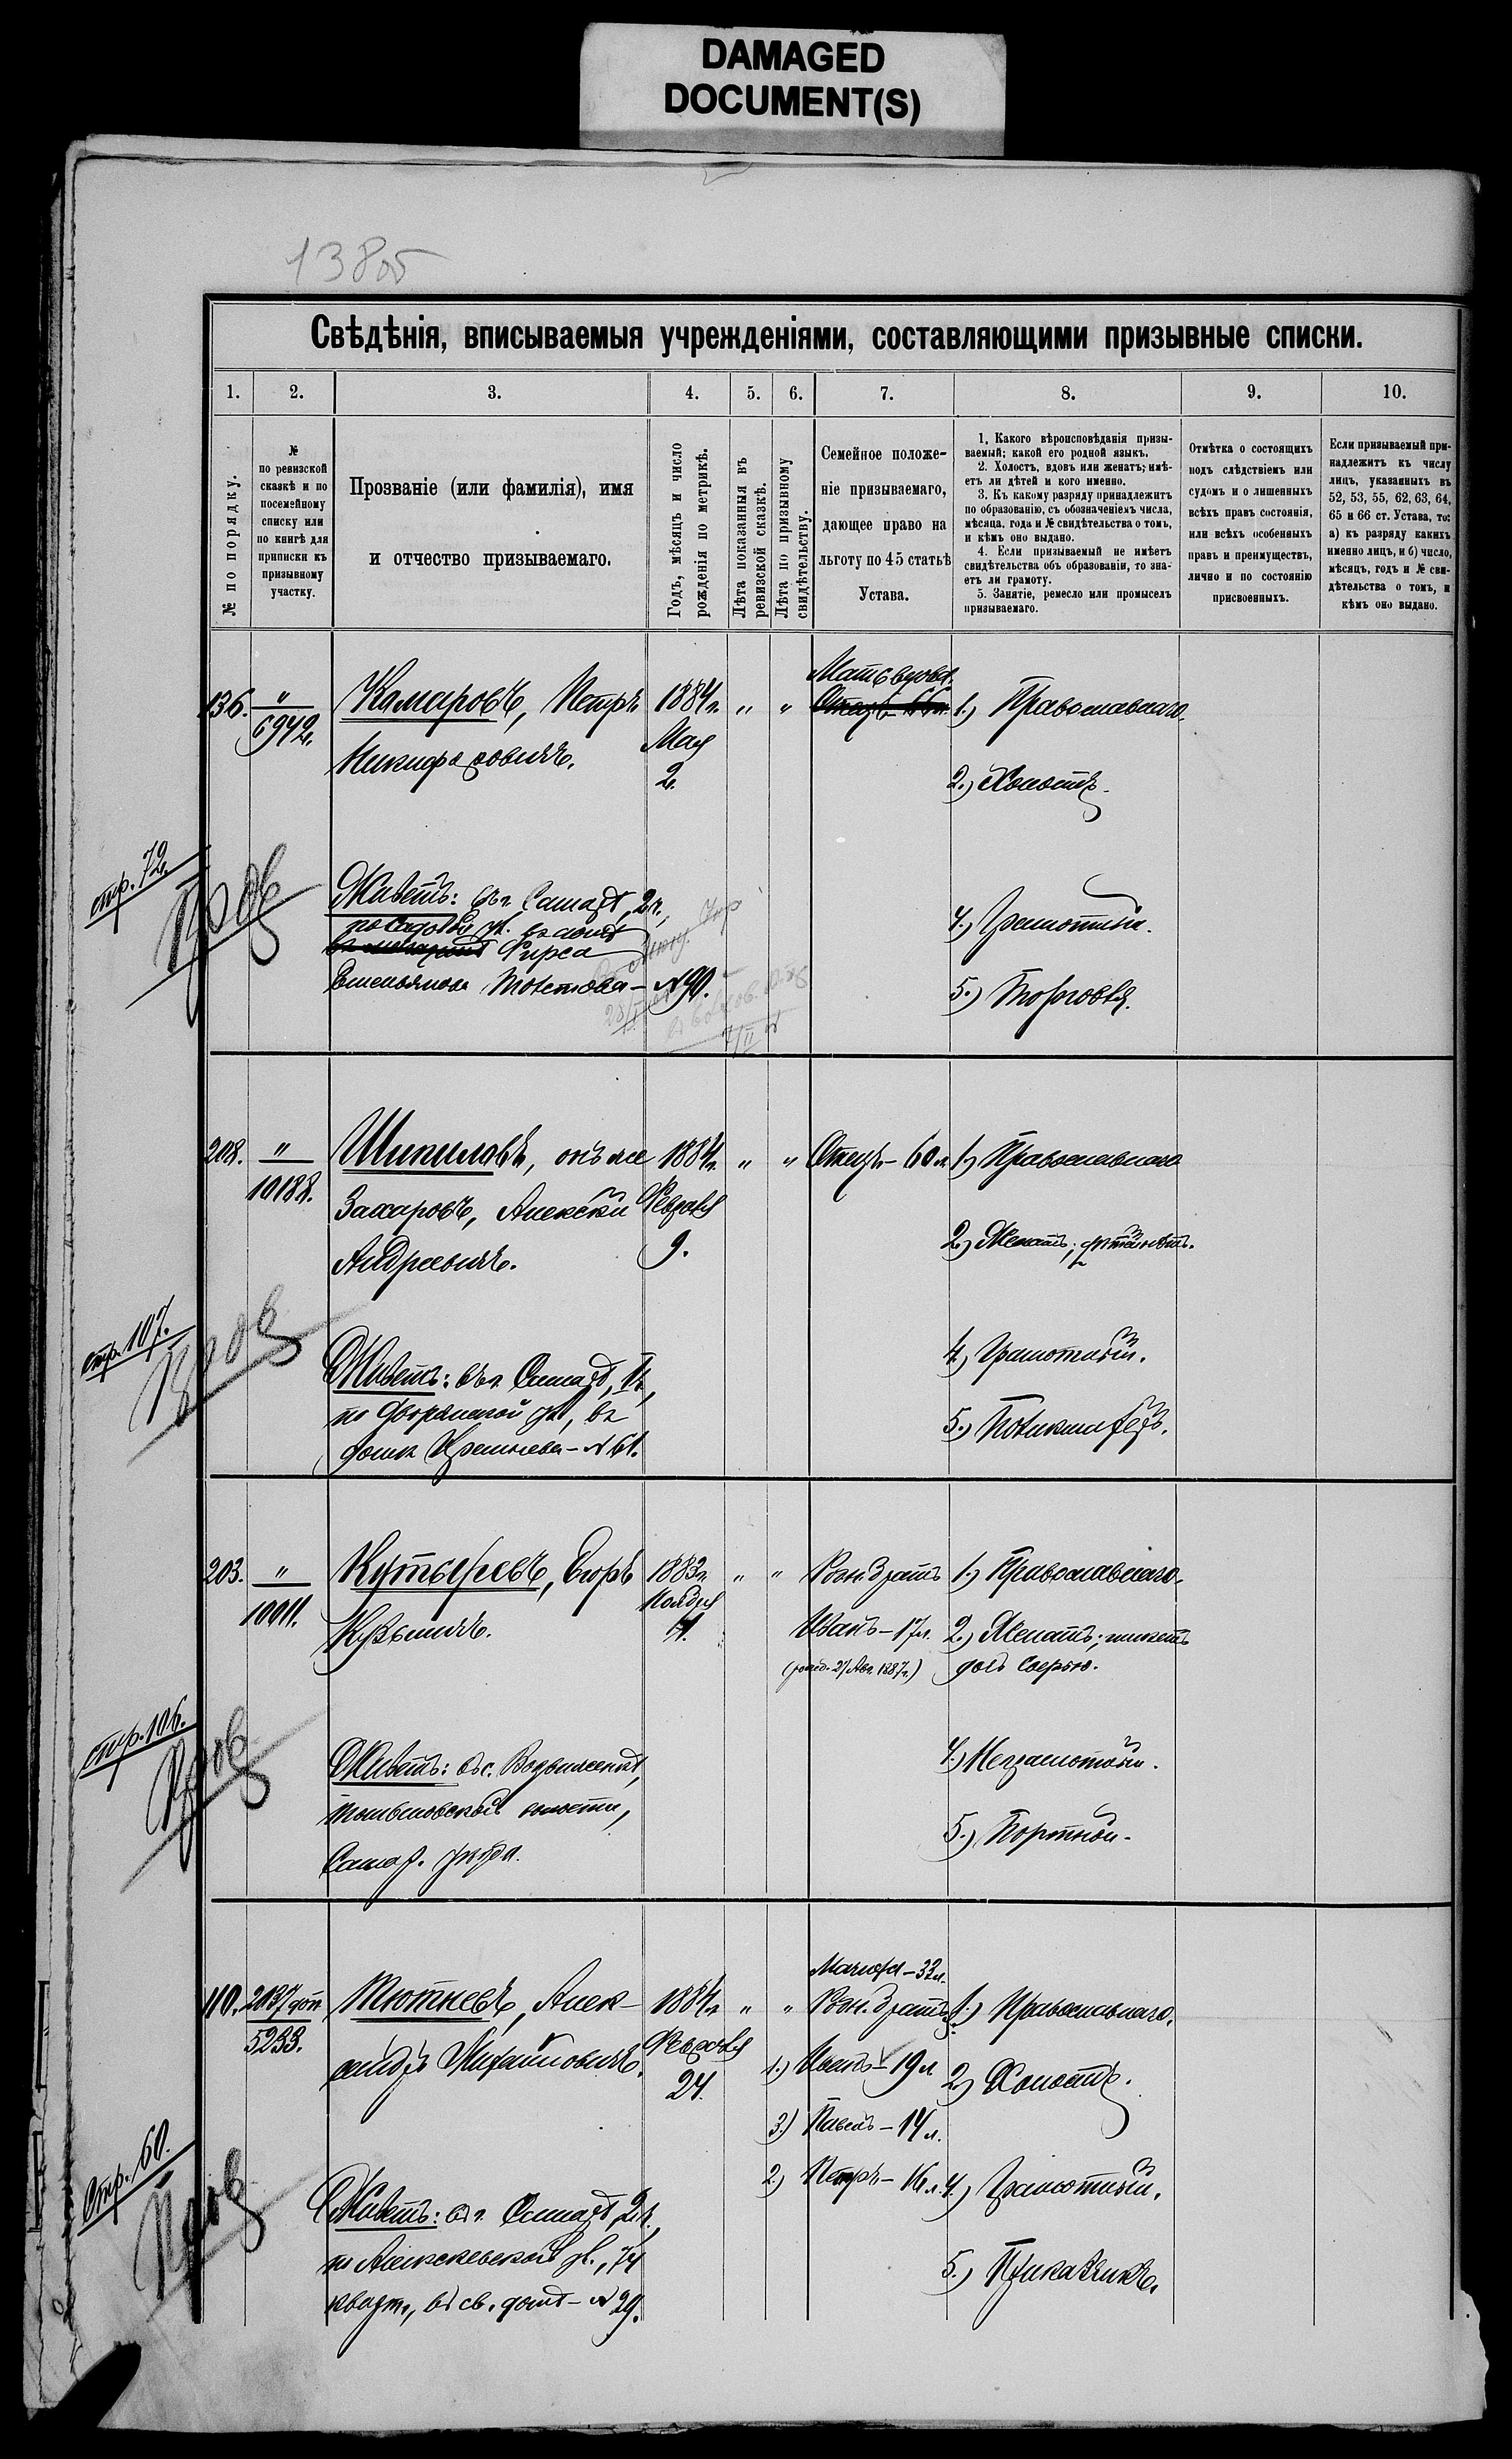 DAMAGED
DOCUMENT(S)
138об
Свѣдѣнія, вписываемыя учрежденіями, составляющими призывные списки.
1. 2. 3. 4. 5. 6. 7. 8. 9. 10.
№ по порядку.
№
по ревизской
сказкѣ и по
посемейному
списку или
по книгѣ для
приписки къ
призывному
участку.
Прозваніе (или фамилія), имя
и отчество призываемаго.
Годъ, мѣсяцъ и число
рожденія по метрикѣ.
Лѣта показанныя въ
ревизской сказкѣ.
Лѣта по призывному
свидѣтельству.
Семейное положе-
ніе призываемаго,
дающее право на
льготу по 45 статьѣ
Устава.
1. Какого вѣроисповѣданія призы-
ваемый; какой его родной языкъ.
2. Холостъ, вдовъ или женатъ; имѣ-
етъ ли дѣтей и кого именно.
3. Къ какому разряду принадлежитъ
по образованію, съ обозначеніемъ числа,
мѣсяца, года и № свидѣтельства о томъ,
и кѣмъ оно выдано.
4. Если призываемый не имѣетъ
свидѣтельства объ образованіи, то зна-
етъ ли грамоту.
5. Занятіе, ремесло или промыселъ
призываемаго.
Отмѣтка о состоящихъ
подъ слѣдствіемъ или
судомъ и о лишенныхъ
всѣхъ правъ состоянія,
или всѣхъ особенныхъ
правъ и преимуществъ,
лично и по состоянію
присвоенныхъ.
Если призываемый при-
надлежитъ къ числу
лицъ, указанныхъ въ
52, 53, 55, 62, 63, 64,
65 и 66 ст. Устава, то:
а) къ разряду какихъ
именно лицъ, и б) число,
мѣсяцъ, годъ и № сви-
дѣтельства о томъ, и
кѣмъ оно выдано.
136. "
6942.
Комаровъ, Петръ
Никифоровичъ.
1884 г. " "
Мая
2.
Мать вдова.
Отецъ 66 л.
1.) Православнаго.
2.) Холостъ.
4.) Грамотный.
5.) Торговля.
стр. 72.
Живетъ: въ г. Самарѣ, 2 ч.,
по Садовой ул. въ домѣ
Фирса
Емельянова Толстова - № 90.
208. "
10188.
Шипиловъ, онъ же
Захаровъ, Алексѣй
Андреевичъ.
1884 г. " "
Февраля
9.
Отецъ - 60 л.
1.) Православнаго
2.) Женатъ; дѣтей нѣтъ.
4.) Грамотный.
5.)
стр. 107.
Живетъ: въ г. Самарѣ, 1 ч.,
по Дворянской ул., въ
домѣ - № 61.
203. "
10011.
Кутыревъ, Егоръ
Кузьмичъ.
1883 г. " "
Ноября
Родн. братъ
Иванъ - 17 л.
(рожд. 21 Авг. 1887 г.)
1.) Православнаго.
2.) Женатъ; имѣетъ
дочь Софью.
4.) Неграмотный.
5.) Портной.
стр. 106.
Живетъ: въ с. Воздвиженкѣ,
волости,
Самар. уѣзда.
110. 2037 доп.
5233.
Тютневъ, Алек-
сандръ Михайловичъ.
1884 г. " "
Февраля
24.
Мачиха - 33 л.
Родн. братья:
1.) Иванъ - 19 л.
3.) Павелъ - 14 л.
2.) Петръ - 16 л.
1.) Православнаго.
2.) Холостъ.
4.) Грамотный.
5.) Приказчикъ.
Стр. 60.
Живетъ: въ г. Самарѣ, 2 ч.,
по Алексѣевской ул., 74
кварт., въ св. домѣ - № 29.